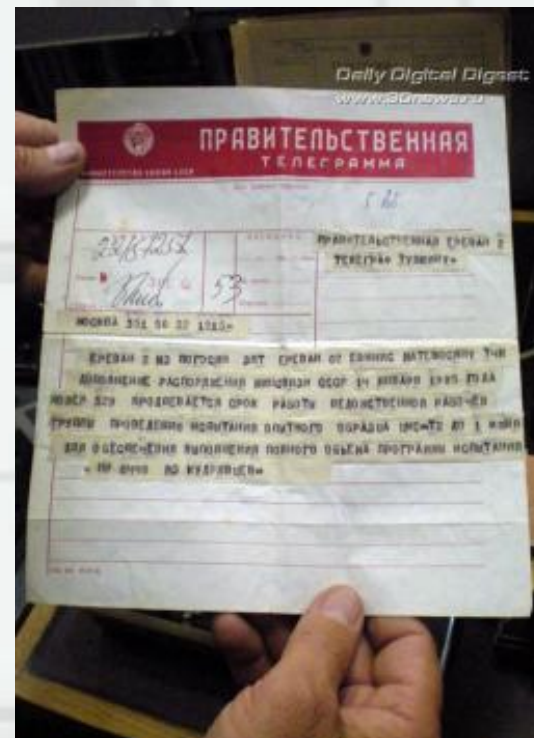 Daily Digital Digest
www.3Dnews.ru
ПРАВИТЕЛЬСТВЕННАЯ
ТЕЛЕГРАММА
МИНИСТЕРСТВО СВЯЗИ СССР
ПРАВИТЕЛЬСТВЕННАЯ ЕРЕВАН 2
ТЕЛЕГРАФ
53
МОСКВА 351 56 22 1915=
ЕРЕВАН 2 МЭ ПОГОСЯН ДЛТ ЕРЕВАН 07 МАТЕВОСЯНУ ТЧК
ДОПОЛНЕНИЕ РАСПОРЯЖЕНИЯ МИНСВЯЗИ СССР 14 ЯНВАРЯ 1985 ГОДА
НОМЕР ПРОДЛЕВАЕТСЯ СРОК РАБОТЫ ВЕДОМСТВЕННОЙ РАБОЧЕЙ
ГРУППЫ ПРОВЕДЕНИЮ ИСПЫТАНИЯ ОПЫТНОГО ОБРАЗЦА ДО 1 ИЮНЯ
ДЛЯ ОБЕСПЕЧЕНИЯ ВЫПОЛНЕНИЯ ПОЛНОГО ОБЪЕМА ПРОГРАММЫ ИСПЫТАНИЯ
КУДРЯВЦЕВ=